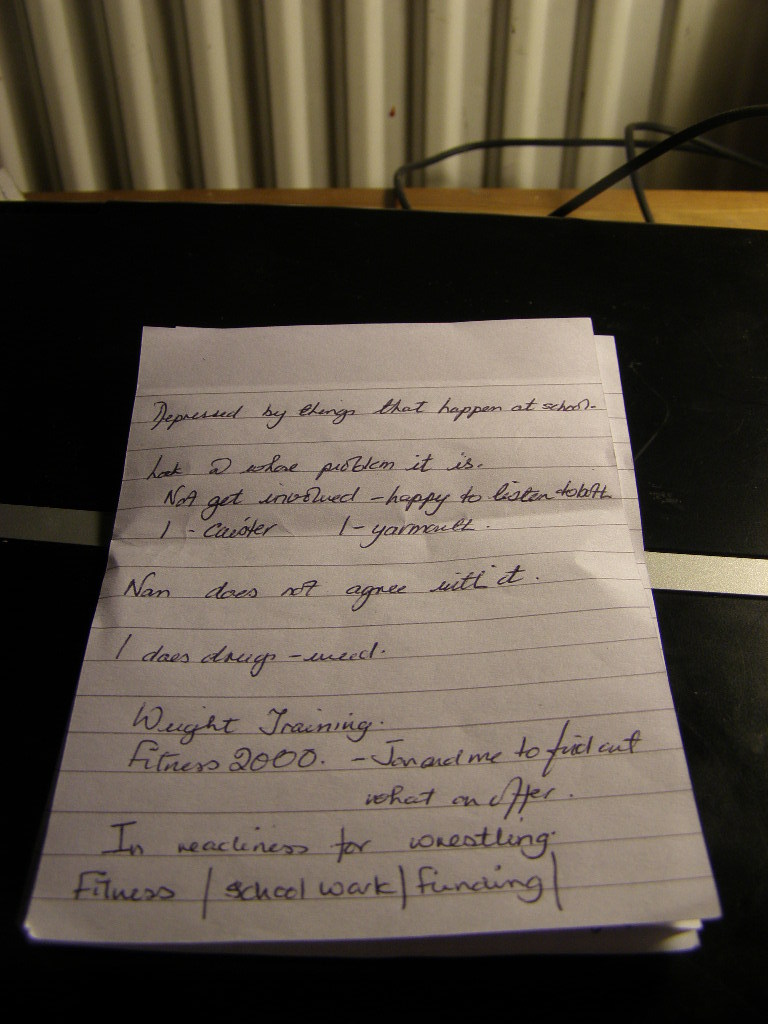 Depressed by things that happen at school.
Look @ whose problem it is.
Not get involved - happy to listen to both
1 - Caister 1 - yarmouth.
Nan does not agree with it.
1 does drugs - weed.
Weight Training.
Fitness 2000. - Jon and me to find out
what on offer.
In readiness for wrestling.
Fitness | school work | funding |